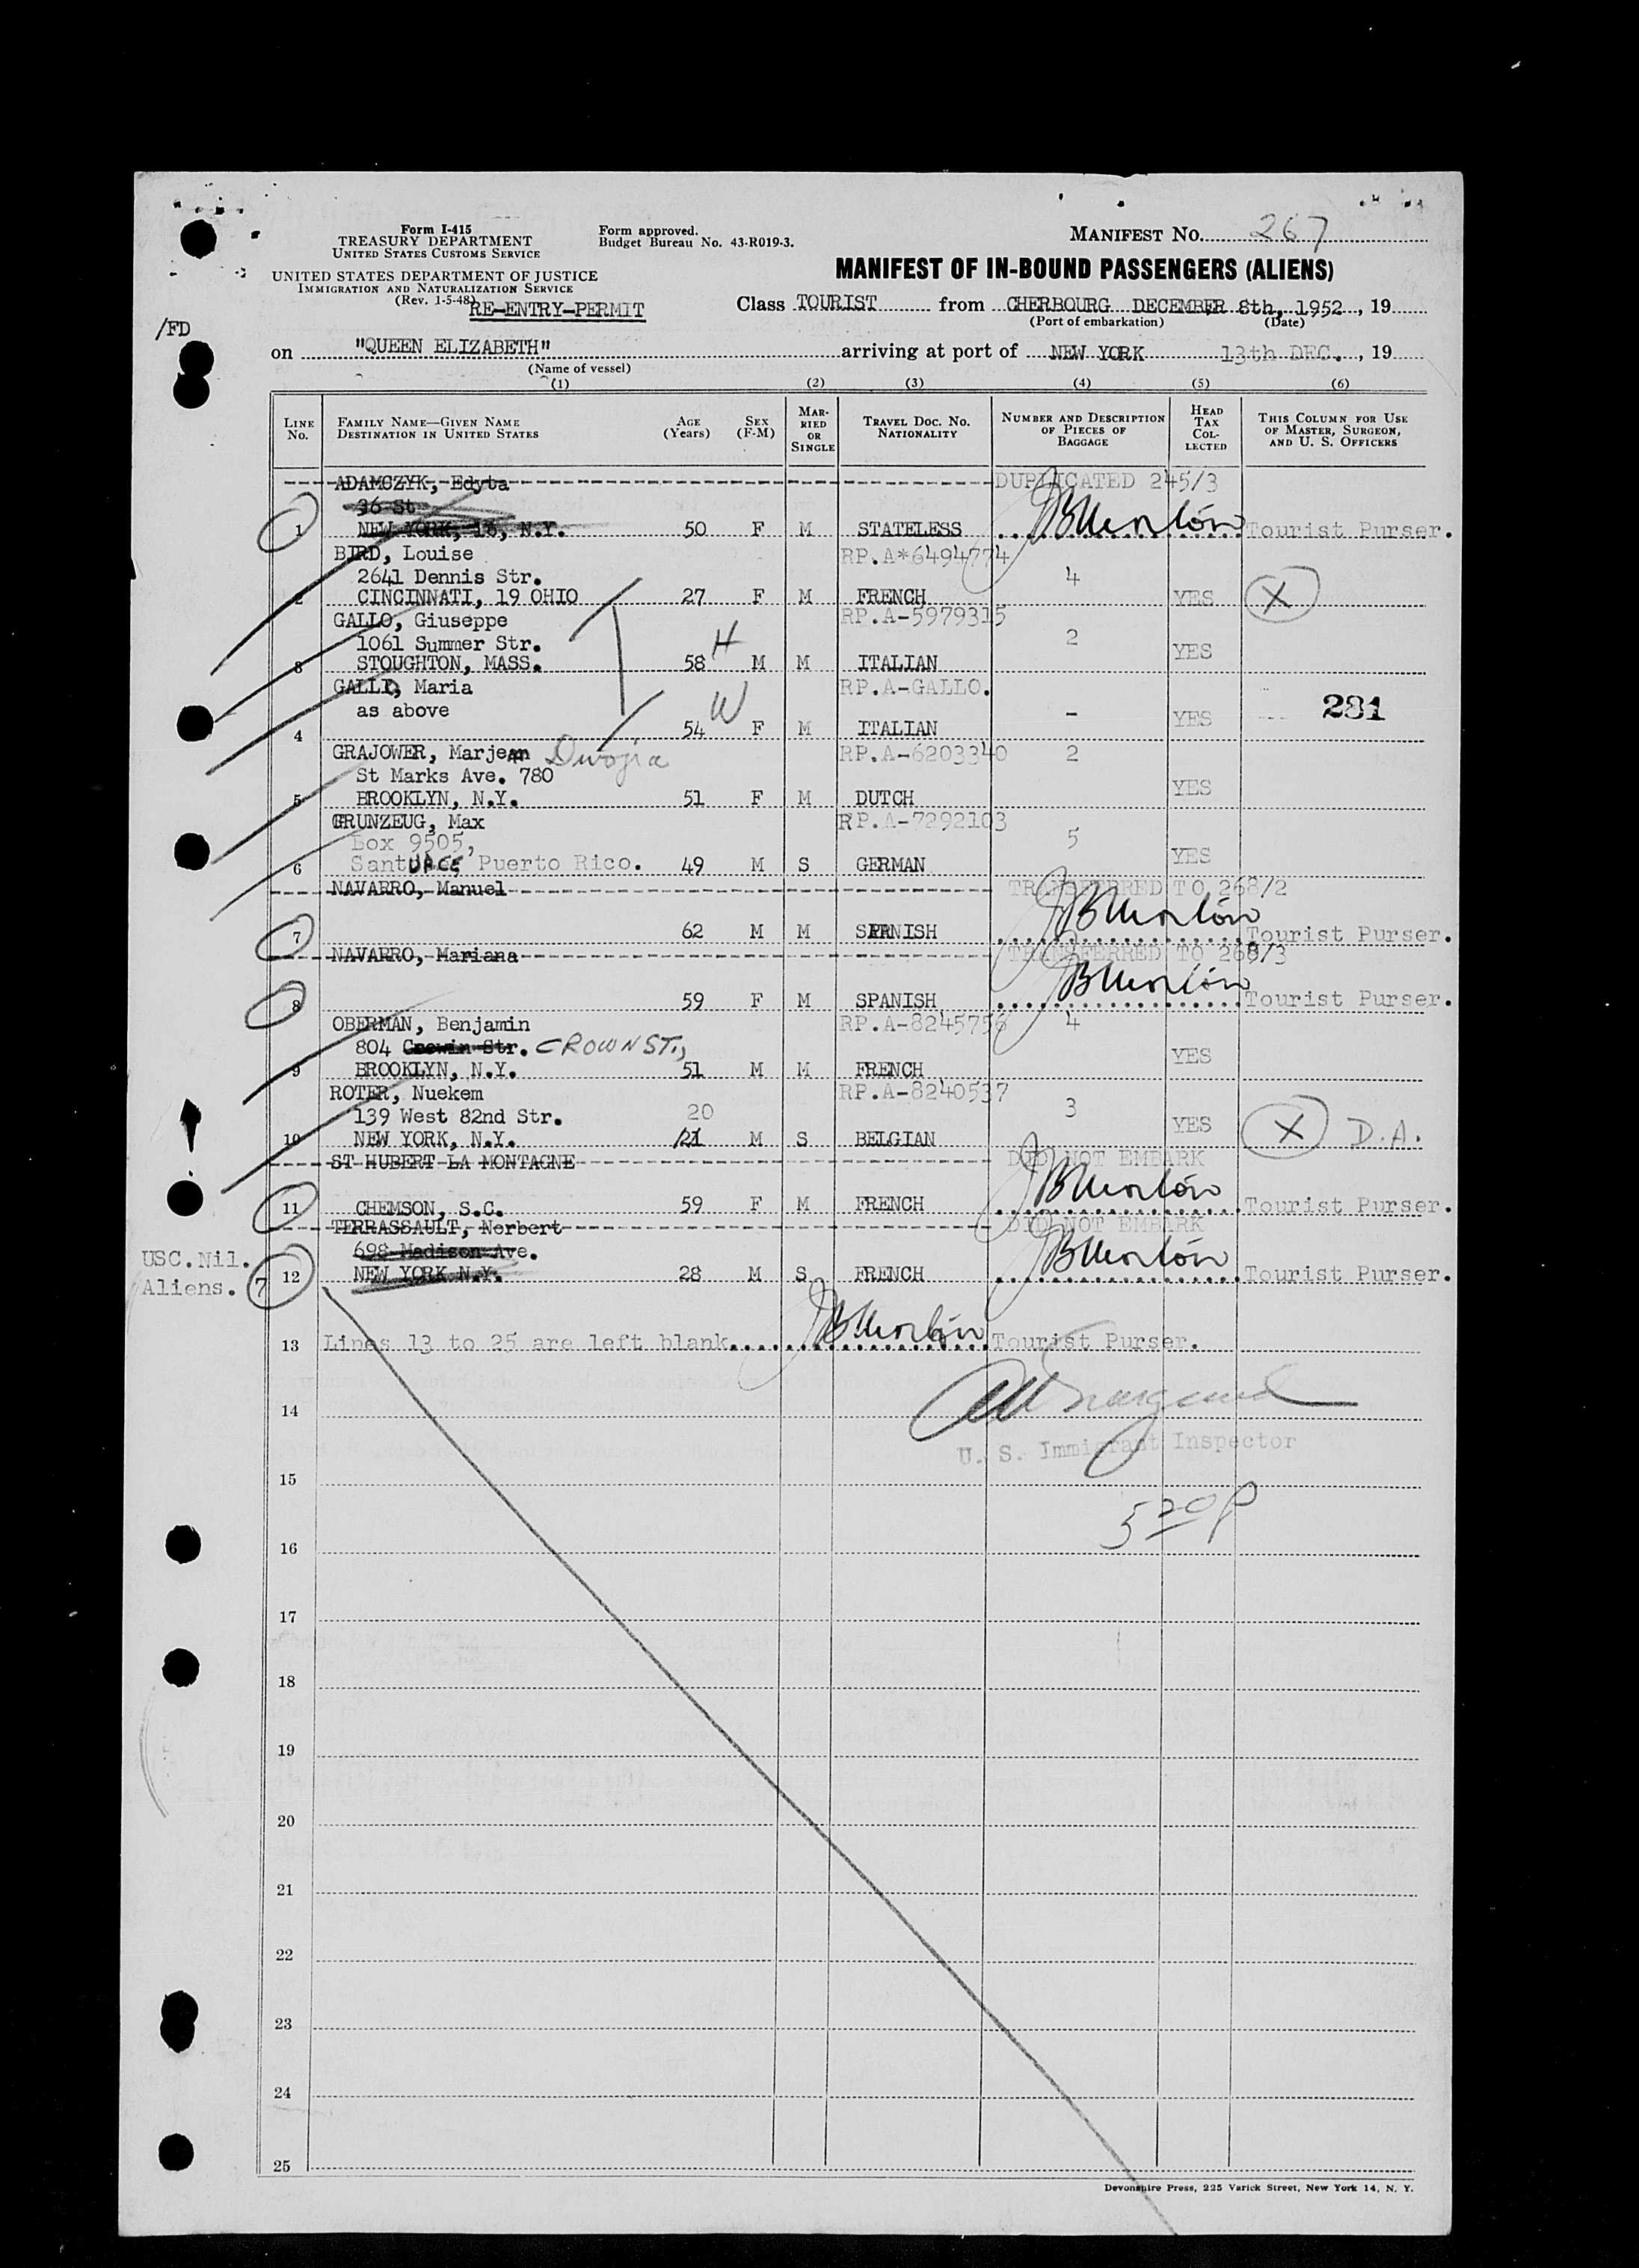 Form I-415
TREASURY DEPARTMENT
UNITED STATES CUSTOMS SERVICE
UNITED STATES DEPARTMENT OF JUSTICE
IMMIGRATION AND NATURALIZATION SERVICE
(Rev. 1-5-48)
RE-ENTRY-PERMIT
Form approved.
Budget Bureau No. 43-R019-3.
MANIFEST NO. 267
MANIFEST OF IN-BOUND PASSENGERS (ALIENS)
Class TOURIST from CHERBOURG DECEMBER 8th, 1952, 19
(Port of embarkation) (Date)
/FD
on "QUEEN ELIZABETH" arriving at port of NEW YORK 13th DEC., 19
(Name of vessel)
(1) (2) (3) (4) (5) (6)
LINE No. FAMILY NAME—GIVEN NAME DESTINATION IN UNITED STATES AGE (Years) SEX (F-M) MARRIED OR SINGLE TRAVEL DOC. NO. NATIONALITY NUMBER AND DESCRIPTION OF PIECES OF BAGGAGE HEAD TAX COLLECTED THIS COLUMN FOR USE OF MASTER, SURGEON, AND U. S. OFFICERS
ADAMCZYK, Edyta DUPLICATED 245/3
36 St
1 NEW YORK, 16, N.Y. 50 F M STATELESS Tourist Purser.
BIRD, Louise RP.A*6494774
2641 Dennis Str. 4
2 CINCINNATI, 19 OHIO 27 F M FRENCH YES X
GALLO, Giuseppe RP.A-5979315
1061 Summer Str. 2
3 STOUGHTON, MASS. 58 H M M ITALIAN YES
GALLO, Maria RP.A-GALLO.
as above - 281
4 54 W F M ITALIAN YES
GRAJOWER, Marjean Dwojia RP.A-6203340 2
St Marks Ave. 780
5 BROOKLYN, N.Y. 51 F M DUTCH YES
GRUNZEUG, Max RP.A-7292103
Box 9505, 5
6 Santurce Puerto Rico. 49 M S GERMAN YES
NAVARRO, Manuel TRANSFERRED TO 268/2
7 62 M M SPANISH Tourist Purser.
NAVARRO, Mariana TRANSFERRED TO 268/3
8 59 F M SPANISH Tourist Purser.
OBERMAN, Benjamin RP.A-8245756 4
804 Crowin Str. CROWN ST.,
9 BROOKLYN, N.Y. 51 M M FRENCH YES
ROTER, Nuekem RP.A-8240537
139 West 82nd Str. 20 3
10 NEW YORK, N.Y. 21 M S BELGIAN YES X D.A.
ST HUBERT LA MONTAGNE DID NOT EMBARK
11 CHEMSON, S.C. 59 F M FRENCH Tourist Purser.
TERRASSAULT, Norbert DID NOT EMBARK
698 Madison Ave.
12 NEW YORK N.Y. 28 M S FRENCH Tourist Purser.
USC. Nil.
Aliens. 7
13 Lines 13 to 25 are left blank. Tourist Purser.
14
U. S. Immigrant Inspector
15
5 20 P
16
17
18
19
20
21
22
23
24
25
Devonshire Press, 225 Varick Street, New York 14, N. Y.